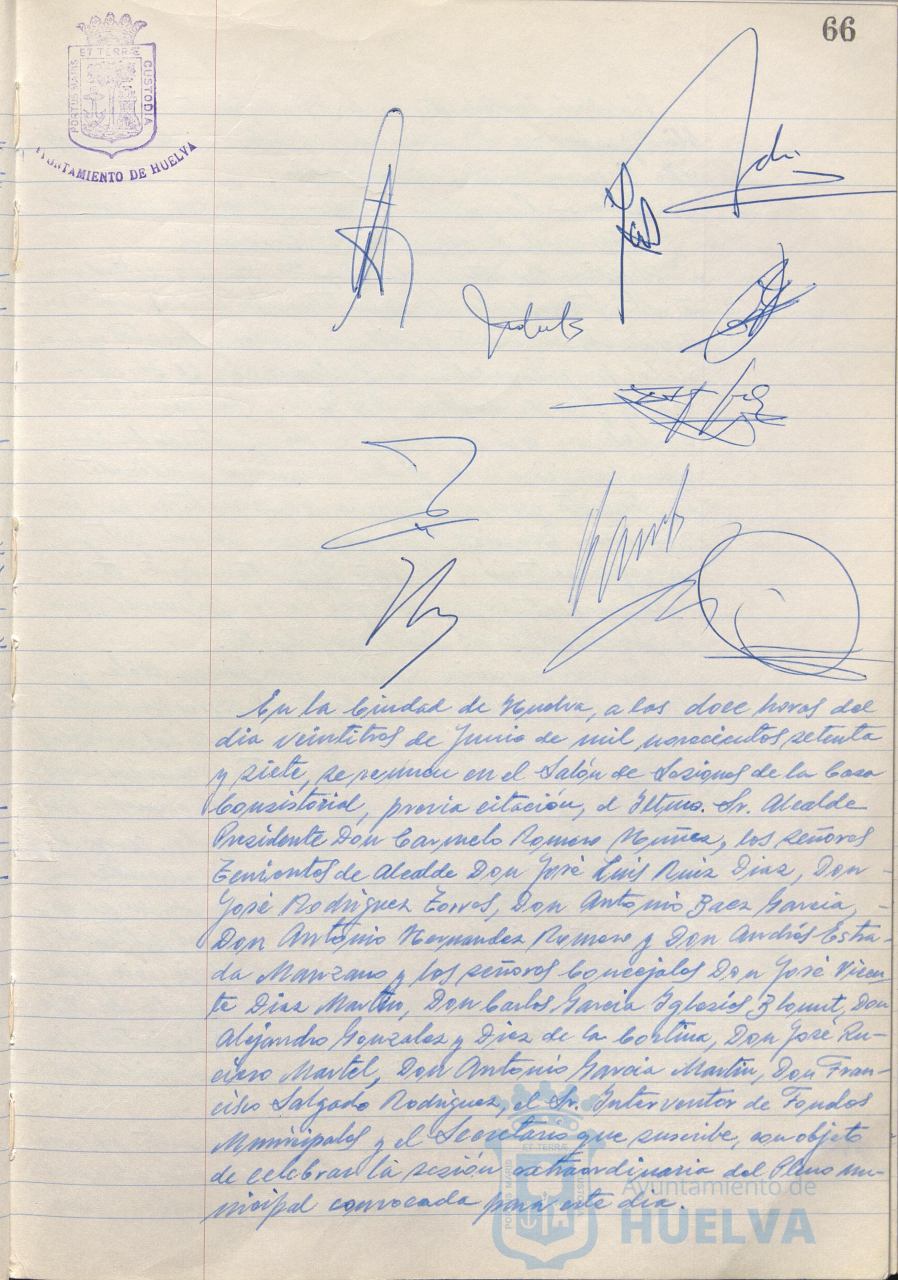 66
PORTUS MARIS ET TERRÆ CUSTODIA
AYUNTAMIENTO DE HUELVA
En la Ciudad de Huelva, a las doce horas del
dia veintitres de Junio de mil novecientos setenta
y siete, se reunen en el Salón de Sesiones de la Casa
Consistorial, previa citación, el Iltmo. Sr. Alcalde
Presidente Don Carmelo Romero Núñez, los señores
Tenientes de Alcalde Don José Luis Ruiz Diaz, Don -
José Rodriguez Torres, Don Antonio Baez Garcia, -
Don Antonio Hernandez Romero y Don Andrés Estra-
da Manzano y los señores Concejales Don José Vicen-
te Diaz Martin, Don Carlos Garcia Iglesias Don
Alejandro Gonzalez y Diez de la Cortina, Don José Ru-
ciero Martel, Don Antonio Garcia Martin, Don Fran-
cisco Salgado Rodriguez, el Sr. Interventor de Fondos
Municipales y el Secretario que suscribe, con objeto
de celebrar la sesión extraordinaria del Pleno mu-
nicipal convocada para este dia.
PORTUS MARIS ET TERRÆ CUSTODIA
Ayuntamiento de
HUELVA